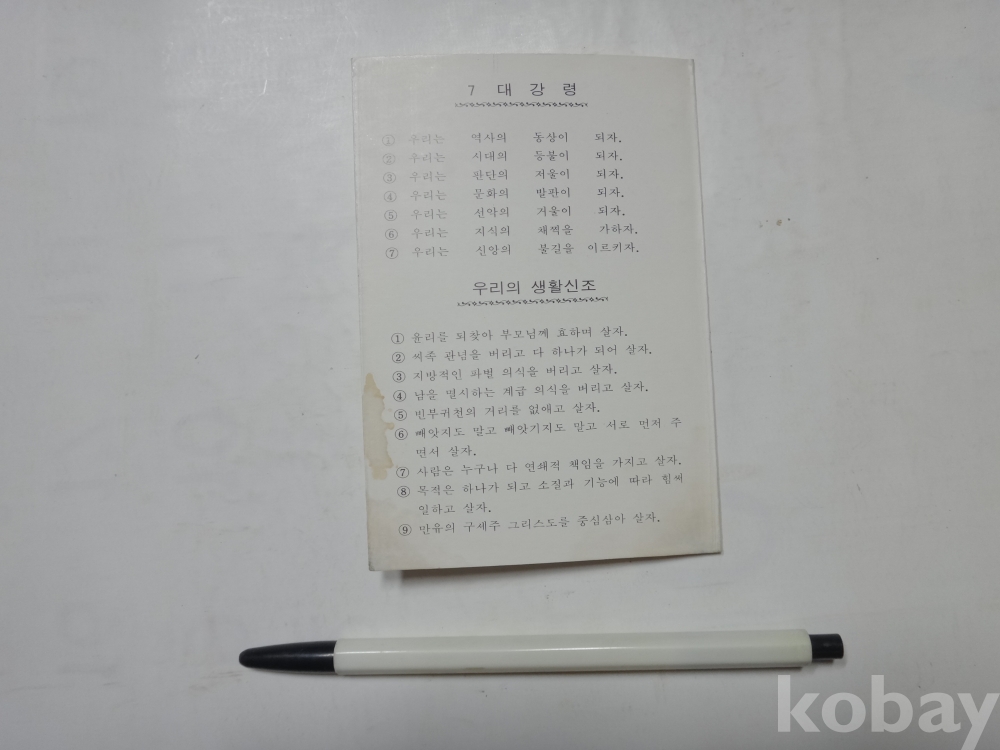 7 대 강 령
① 우리는 역사의 동상이 되자.
② 우리는 시대의 등불이 되자.
③ 우리는 판단의 저울이 되자.
④ 우리는 문화의 발판이 되자.
⑤ 우리는 선악의 거울이 되자.
⑥ 우리는 지식의 채찍을 가하자.
⑦ 우리는 신앙의 불길을 이르키자.
우리의 생활신조
① 윤리를 되찾아 부모님께 효하며 살자.
② 씨족 관념을 버리고 다 하나가 되어 살자.
③ 지방적인 파벌 의식을 버리고 살자.
④ 남을 멸시하는 계급 의식을 버리고 살자.
⑤ 빈부귀천의 거리를 없애고 살자.
⑥ 빼앗지도 말고 빼앗기지도 말고 서로 먼저 주
면서 살자.
⑦ 사람은 누구나 다 연쇄적 책임을 가지고 살자.
⑧ 목적은 하나가 되고 소질과 기능에 따라 힘써
일하고 살자.
⑨ 만유의 구세주 그리스도를 중심삼아 살자.
kobay